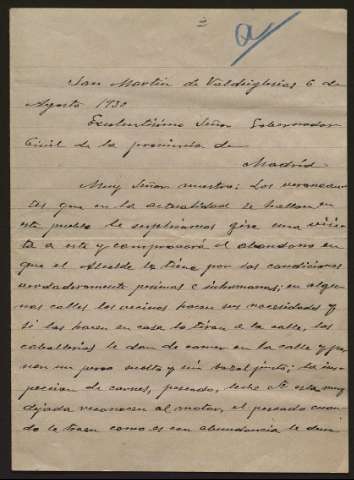 a
San Martin de Valdeiglesias 6 de
Agosto 1930
Exelentisimo Señor Gobernador
Civil de la provincia de
Madrid
Muy Señor nuestro: Los veranean
tes que en la actualidad se hallan en
este pueblo le suplicamos gire una visi
ta a este y comprovará el abandono en
que el Alcalde lo tiene por las condiciones
verdaderamente pesimas e inhumanas; en algu
nas calles los vecinos hacen sus necesidades y
si las hacen en casa lo tiran a la calle, las
caballerías le dan de comer en la calle y po
nen un perro suelto y sin bozal junto; la ins
peccion de carnes, pescado, leche etc esta muy
dejada reconocen al matar, el pescado cuan
do lo traen como es con abundancia le dan